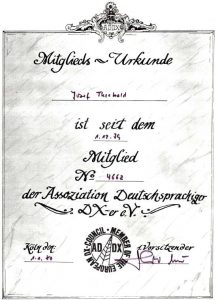 ADDX
Mitglieds-Urkunde
Josef Theobald
ist seit dem
Mitglied
No 4662
der Assoziation Deutschsprachiger
DX-er e.V.
MEMBER OF THE EUROPEAN DX-COUNCIL
ADDX
Köln den:
Vorsitzender